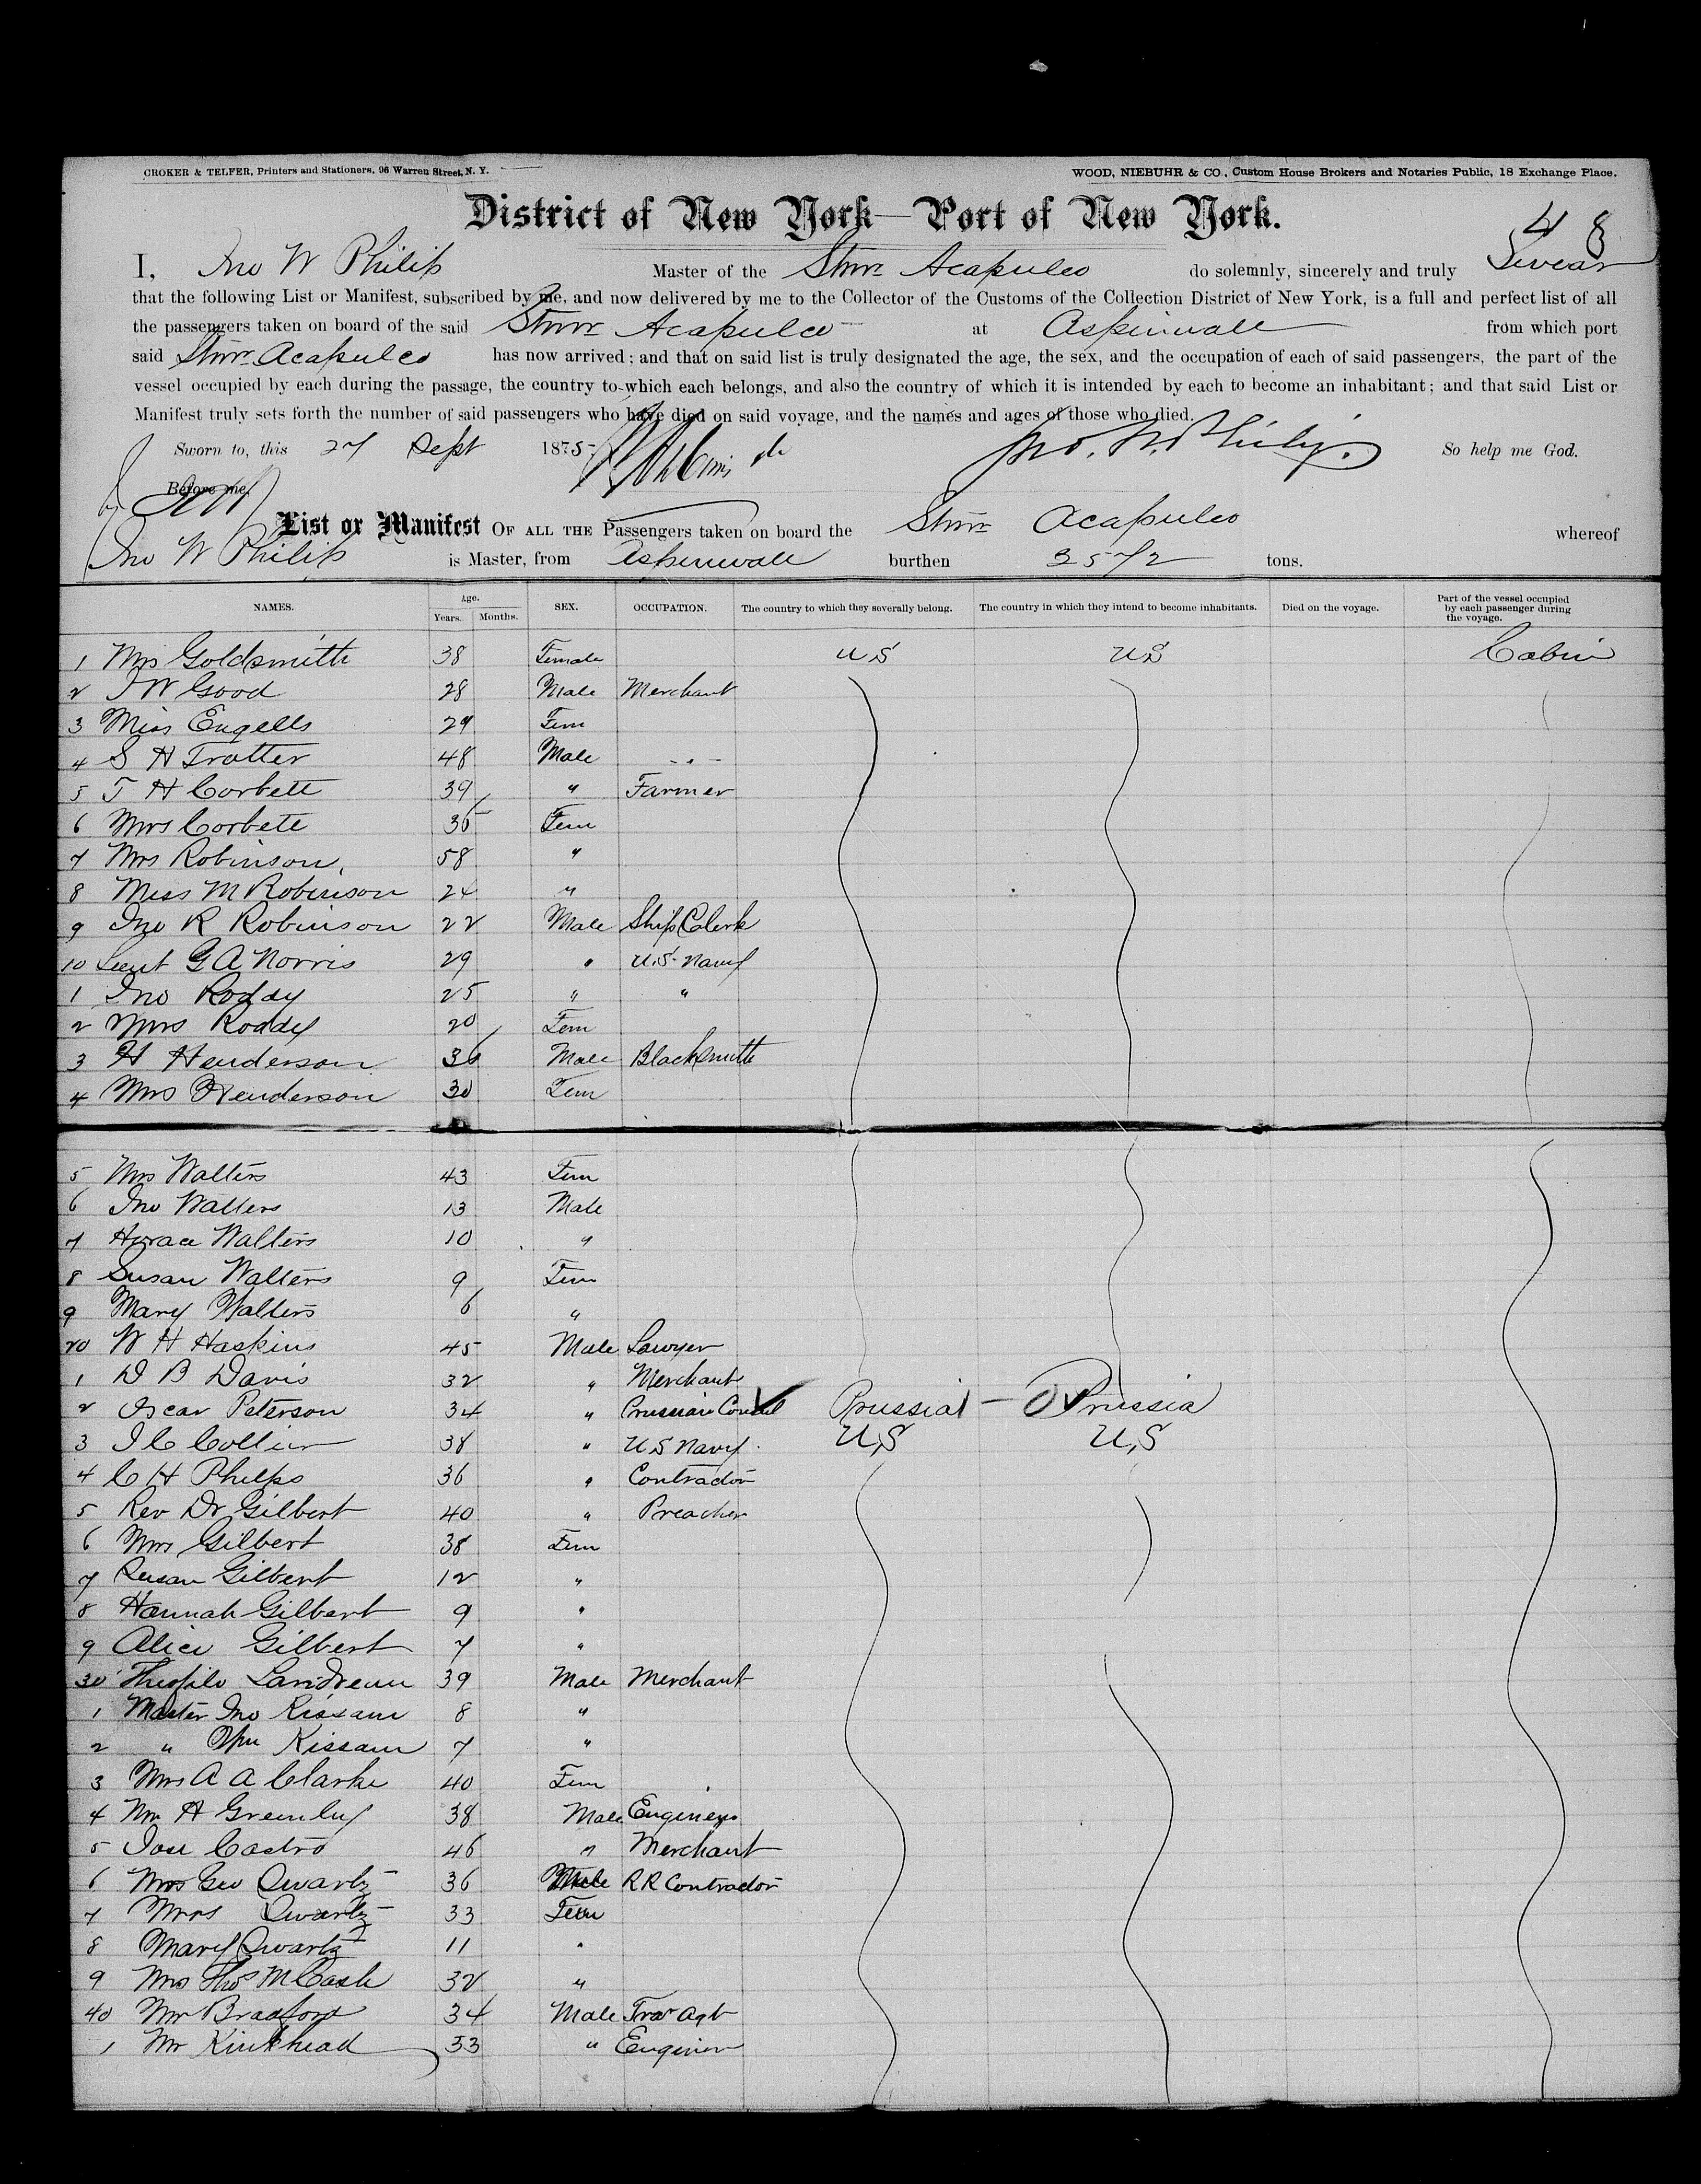 CROKER & TELFER, Printers and Stationers, 96 Warren Street, N. Y.
WOOD, NIEBUHR & CO., Custom House Brokers and Notaries Public, 18 Exchange Place.
District of New York—Port of New York.
48
I, Jno W Philip Master of the Stmr Acapulco do solemnly, sincerely and truly Swear
that the following List or Manifest, subscribed by me, and now delivered by me to the Collector of the Customs of the Collection District of New York, is a full and perfect list of all
the passengers taken on board of the said Stmr Acapulco at Aspinwall from which port
said Stmr Acapulco has now arrived; and that on said list is truly designated the age, the sex, and the occupation of each of said passengers, the part of the
vessel occupied by each during the passage, the country to which each belongs, and also the country of which it is intended by each to become an inhabitant; and that said List or
Manifest truly sets forth the number of said passengers who have died on said voyage, and the names and ages of those who died.
Sworn to, this 27 Sept 1875 Jno. W. Philip. So help me God.
Before me,
List or Manifest OF ALL THE Passengers taken on board the Stmr Acapulco whereof
Jno W Philip is Master, from Aspinwall burthen 3572 tons.
NAMES. Age. Years. Months. SEX. OCCUPATION. The country to which they severally belong. The country in which they intend to become inhabitants. Died on the voyage. Part of the vessel occupied by each passenger during the voyage.
1 Mrs Goldsmith 38 Female US US Cabin
2 J W Good 28 Male Merchant
3 Miss Engells 29 Fem
4 S H Trotter 48 Male "
5 T H Corbett 39 " Farmer
6 Mrs Corbett 36 Fem
7 Mrs Robinson, 58 "
8 Miss M Robinson 24 "
9 Jno R Robinson 22 Male Ship Clerk
10 Lieut G A Norris 29 " U.S. Navy
1 Jno Roddy 25 " "
2 Mrs Roddy 20 Fem
3 H Henderson 36 Male Blacksmith
4 Mrs Henderson 30 Fem
5 Mrs Walters 43 Fem
6 Jno Walters 13 Male
7 Horace Walters 10 "
8 Susan Walters 9 Fem
9 Mary Walters 6 "
20 W H Haskins 45 Male Lawyer
1 D B Davis 32 " Merchant
2 Oscar Peterson 34 " Prussian Consul Prussia - Prussia
3 J C Collier 38 " U S Navy. U,S U,S
4 C H Phelps 36 " Contractor
5 Rev Dr Gilbert 40 " Preacher
6 Mrs Gilbert 38 Fem
7 Susan Gilbert 12 "
8 Hannah Gilbert 9 "
9 Alice Gilbert 7 "
30 Theofilo Landreau 39 Male Merchant
1 Master Jno Kissam 8 "
2 " Wm Kissam 7 "
3 Mrs A A Clarke 40 Fem
4 Mr H Greenley 38 Male Engineer
5 Jose Castro 46 " Merchant
6 Geo Swartz 36 Male R R Contractor
7 Mrs Swartz 33 Fem
8 Mary Swartz 11 "
9 Mrs Thos M Cash 32 "
40 Mr Bradford 34 Male Trav Agt
1 Mr Kinkhead 53 " Engineer